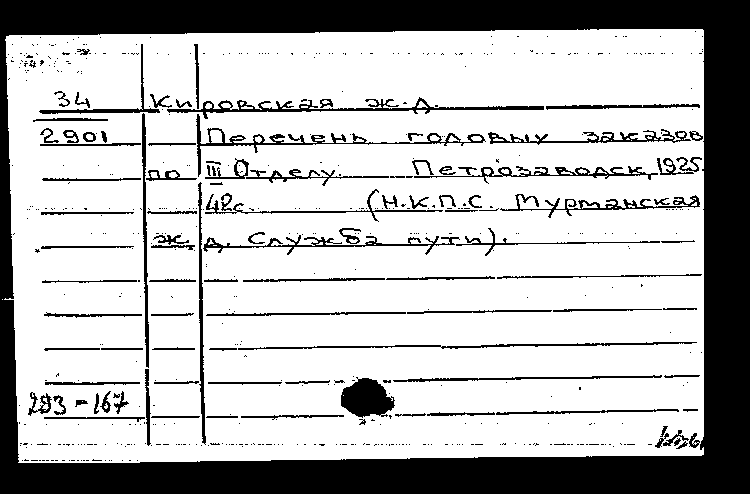 34 Кировская ж.д.
2901 Перечень годовых заказов
по III Отделу. Петрозаводск, 1925.
42с. (Н.К.П.С. Мурманская
ж.д. Служба пути).
293-167